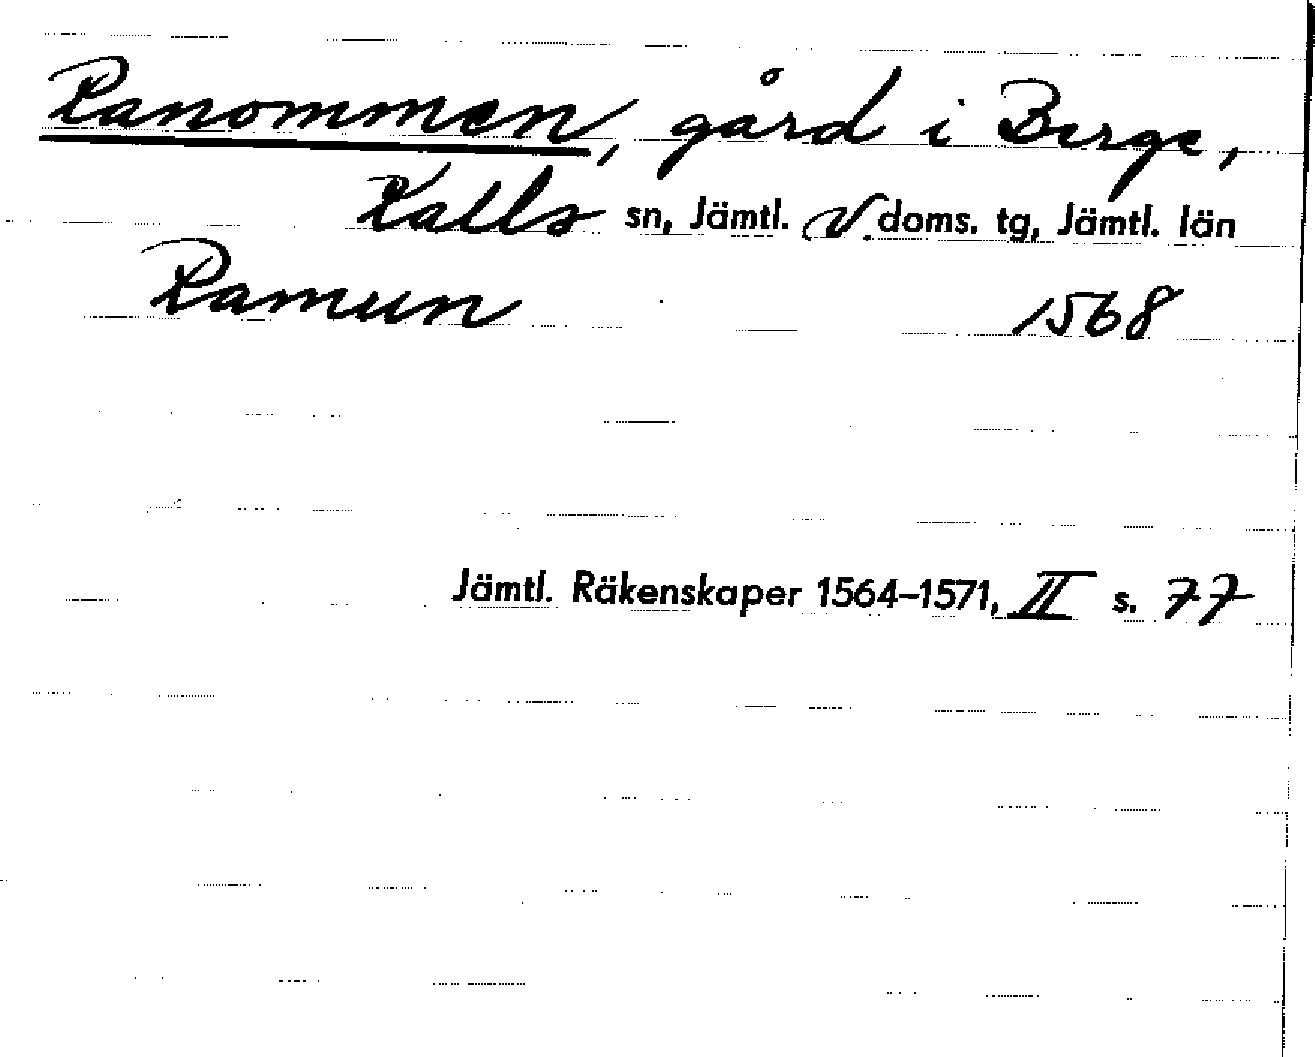 Ranommen, gård i Berge,
Kalls sn, Jämtl. V. doms. tg, Jämtl. län
Ramun 1568
Jämtl. Räkenskaper 1564–1571, II s. 77